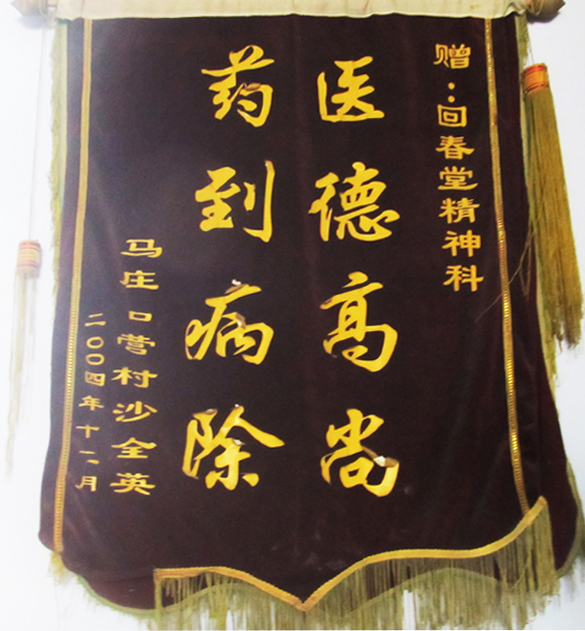 赠:回春堂精神科
医德高尚
药到病除
马庄 口营村沙全英
二00四年十一月